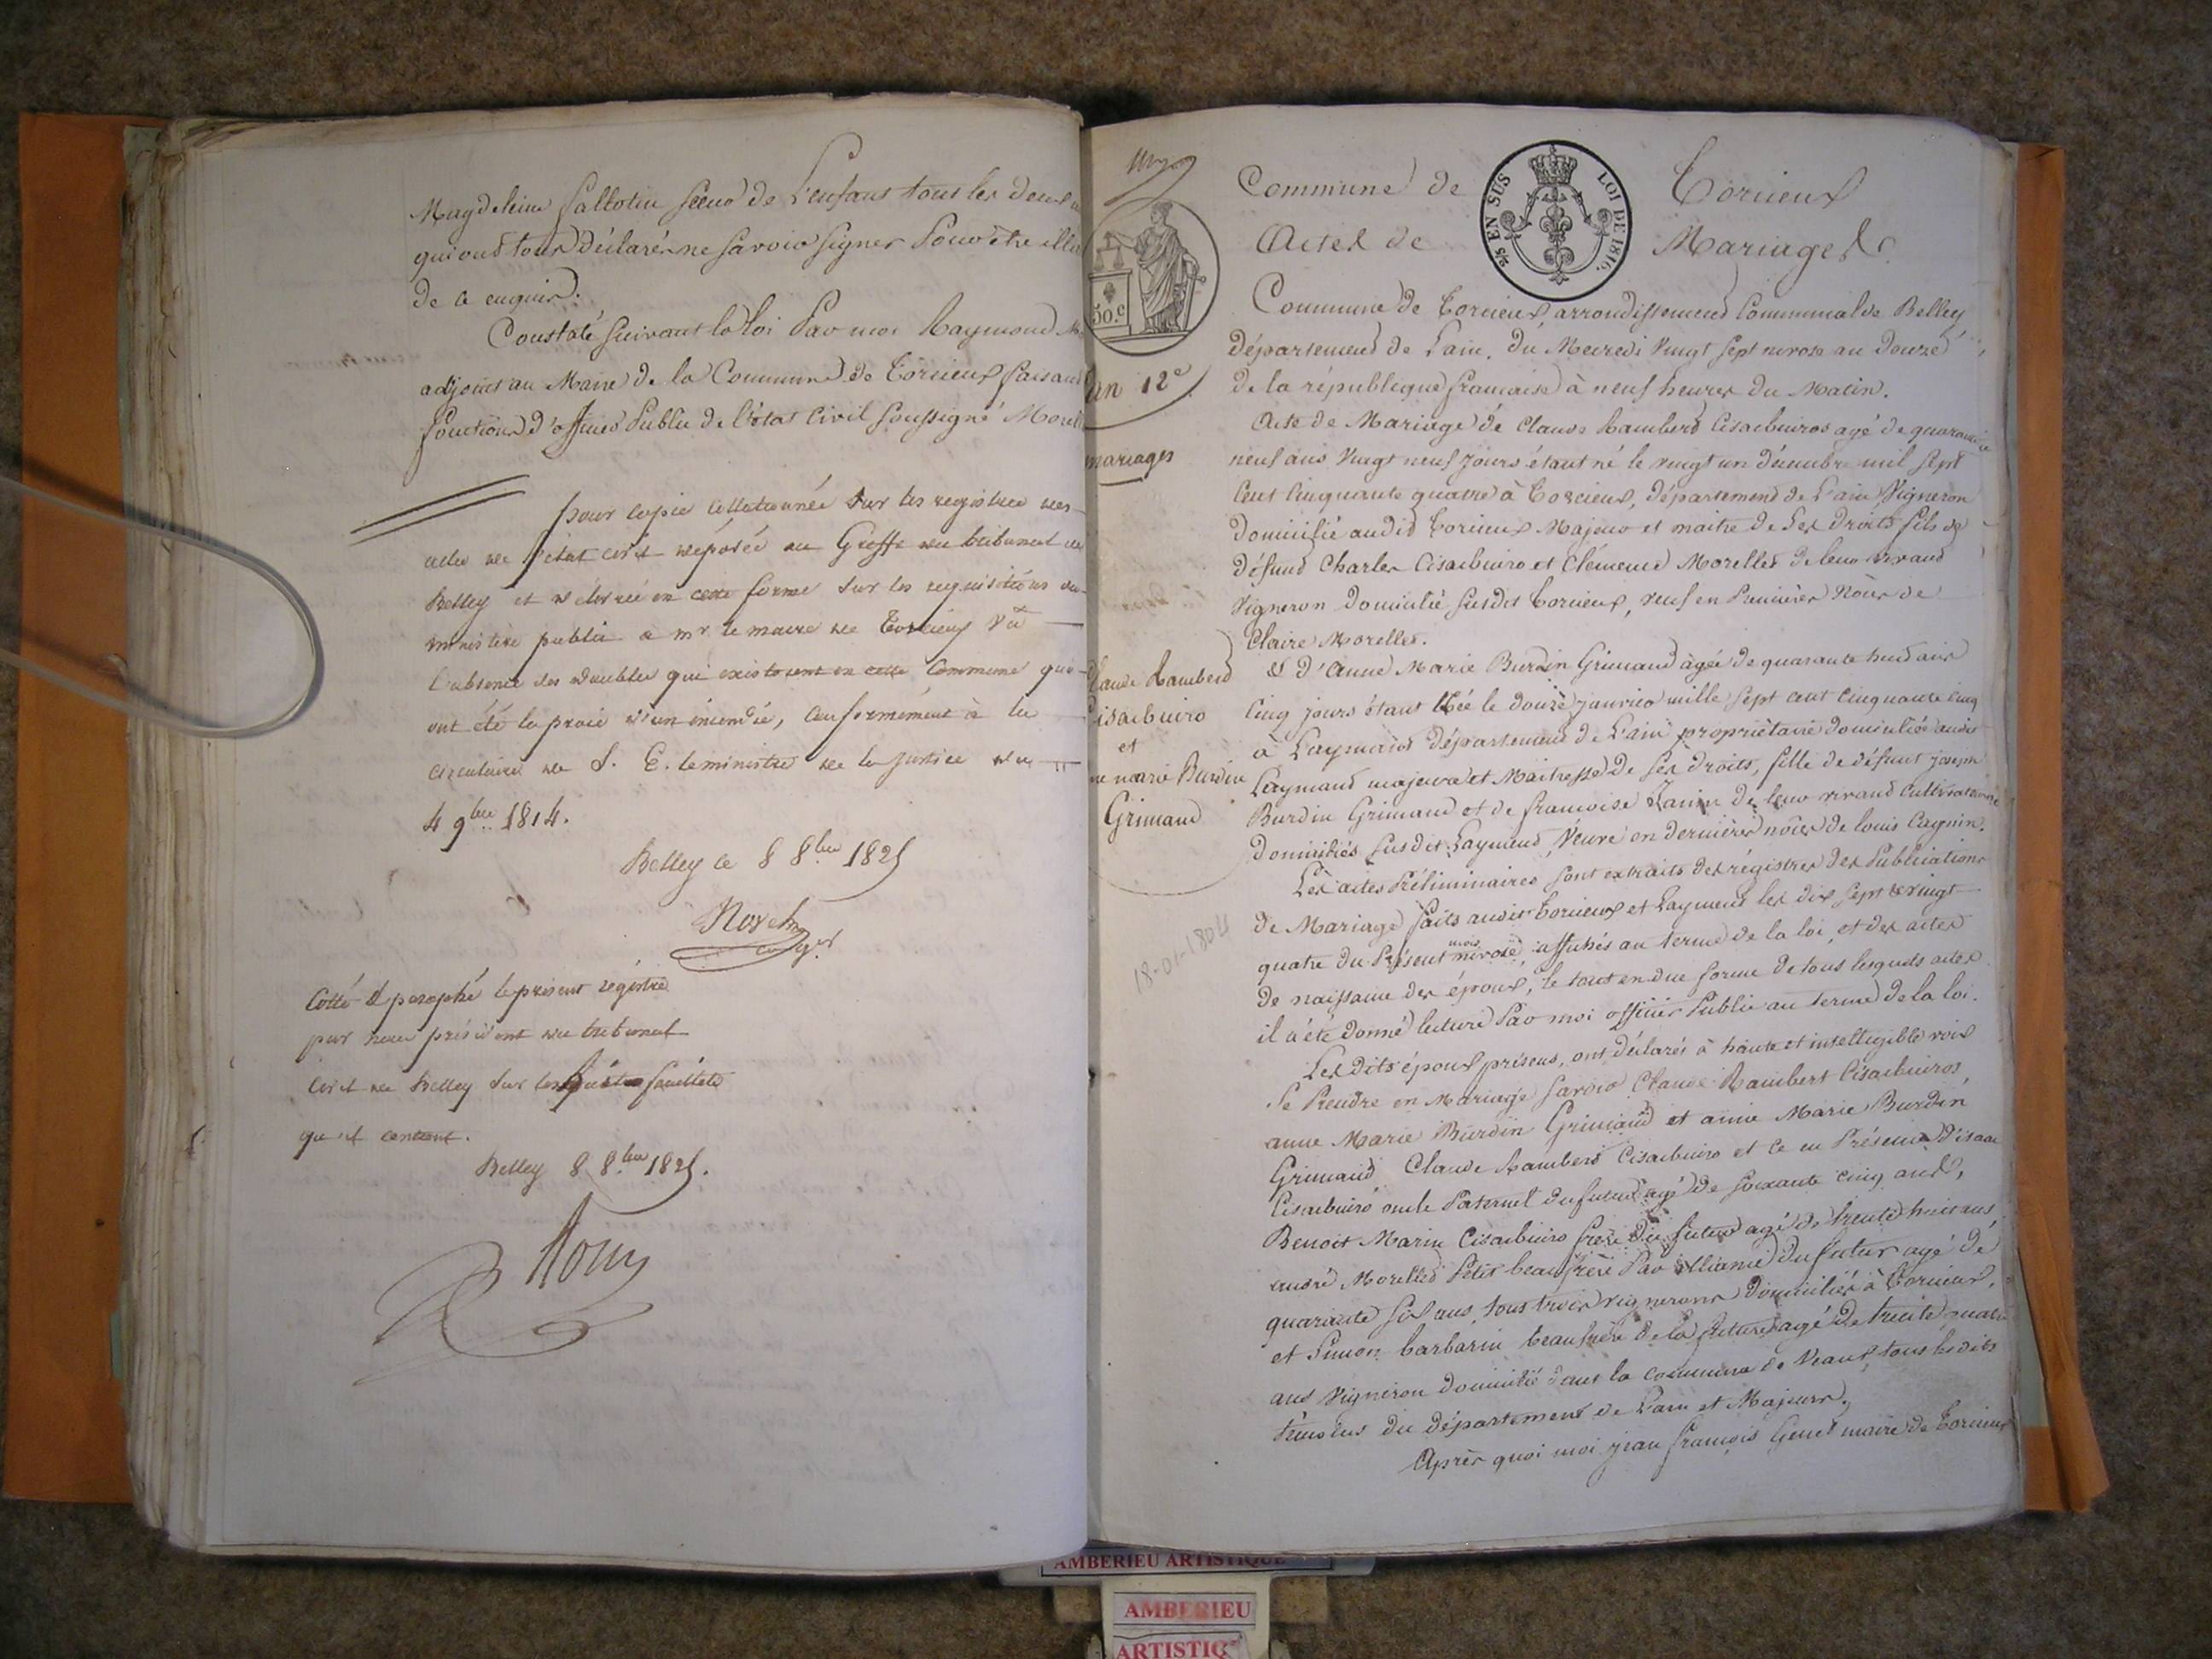 Magdeleine Sallotin seeur de L'enfant tous les deux
qui ont tous déclarés ne savoir signer Pour être
de ce enquis.
Constaté suivant la loi Par moi Raymond
adjoint au Maire de la Commune de Torcieux faisant
fonctions d'officier Public de l'état Civil soussigné Morel
pour copie collationnée sur les registres des
actes de l'état civil déposés au Greffe du tribunal de
Belley et délivrée en cette forme sur les requisitions du
ministère public à mr le maire de Torcieux Vu
l'absence des doubles qui existoient en cette Commune qui
ont été la proie d'un incendie, conformément à la
circulaire de S. E. le ministre de la justice du
4 9bre 1814.
Belley ce 8 8bre 1825
Cotté & paraphé le présent régistre
par nous président du tribunal
Civil de Belley sur les feuillets
qu'il contient.
Belley 8 8bre 1825.
2/5 EN SUS
LOI DE 1816.
Commune de Torcieux
Actes de Mariages
50.c
an 12e
mariages
Commune de Torcieux, arrondissement Communal de Belley
département de L'ain, du Mecredi Vingt sept nivose an Douzé
de la république francaise à neuf heures du Matin.
Acte de Mariage de Claude Rambert Cisarbuiros agé de quarante
neuf ans Vingt neuf jours étant né le vingt un décembre mil sept
Cent Cinquante quatre à Torcieux, département de L'ain Vigneron
domicilié audit Torcieux Majeur et maitre de Ses Droits fils de
défund Charles Cisarbuiro et Clémence Morellet de leur vivand
Vigneron Domicilié susdit Torcieux, veuf en Premières Nôces de
Claire Morellet.
Claude Rambert
Cisarbuiro
et
marie Burdin
Grimaud
18-01-1804
& d'Anne Marie Burdin Grimaud àgée de quarante huit ans
Cinq jours étant Née le douze janvier mille sept cent cinquante cinq
à Laymand département de L'ain propriétaire domiciliée audit
Laymand majeure et Maitresse de Ses droits, fille de défunt joseph
Burdin Grimaud et de francoise Janin de leur vivand Cultivateurs
domiciliés susdit Laymand, Veuve en dernières nôces de louis Cagnin.
Les actes Préliminaires sont extraits des régistres des Publications
de Mariage faits audit Torcieux et Laymend les dix sept & vingt
quatre du Présent mois nivose, affichés au terme de la loi, et des actes
de naissance des époux, le tout en due forme de tous lesquels actes
il a été donné lecture Par moi officier Public au terme de la loi.
Les dits époux présens, ont déclarés à haute et intelligible voix
Se Prendre en Mariage savoir Claude Rambert Cisarbuiros,
anne Marie Burdin Grimaud et anne Marie Burdin
Grimaud Claude Rambert Cisarbuiro et ce en Présence d'isaac
Cisarbuiro oncle Paternel du futur agé de soixante cinq ans,
Benoit Marin Cisarbuiro frère du futur agé de trente huit ans
andré Morellet Petit beaufrère Par alliance du futur agé dé
quarante six ans, tous trois vignerons domiciliés à Torcieux,
et Simon barbarin beaufrère de la future agé de trente quatre
ans Vigneron domicilié dans la commune de Vaux, tous lesdits
témoins du département de L'ain et Majeurs,
Après quoi moi jean francois Genet maire de Torcieux
AMBERIEU ARTISTIQUE
AMBERIEU
ARTISTIQ